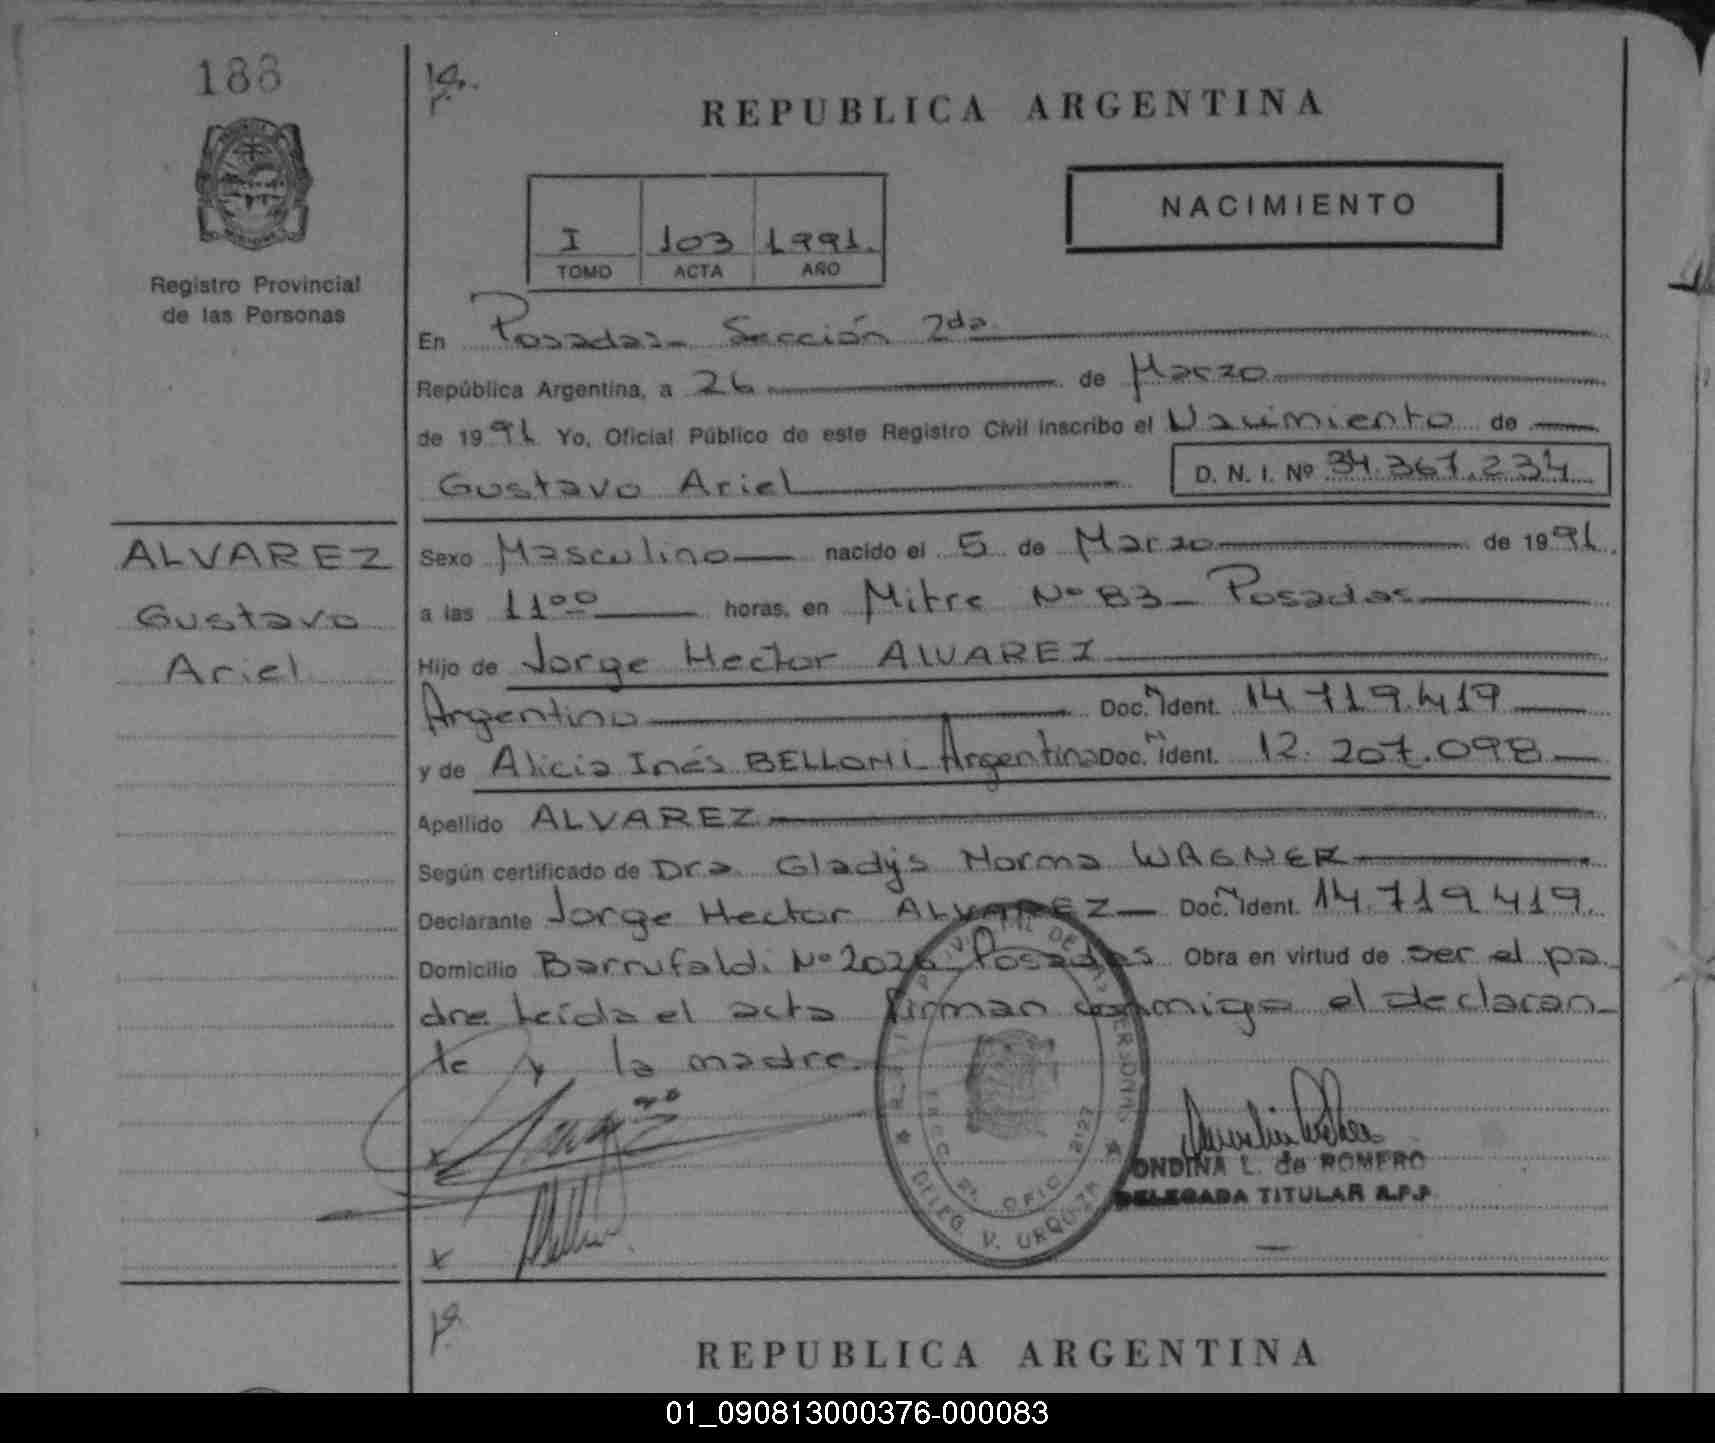 188
REPUBLICA ARGENTINA
I 103 1991.
TOMO ACTA AÑO
NACIMIENTO
Registro Provincial
de las Personas
En Posadas- Sección 2da
República Argentina, a 26 de Marzo
de 1991 Yo, Oficial Público de este Registro Civil inscribo el Nacimiento de
Gustavo Ariel D. N. I. Nº 34.367.234
ALVAREZ
Gustavo
Ariel
Sexo Masculino nacido el 5 de Marzo de 1991.
a las 11 00 horas, en Mitre Nº 83- Posadas
Hijo de Jorge Hector ALVAREZ
Argentino Doc. Ident. 14.719.419
y de Alicia Inés BELLONI- Argentina Doc. Ident. 12.207.098
Apellido ALVAREZ
Según certificado de Dra. Gladys Norma WAGNER
Declarante Jorge Hector ALVAREZ Doc. Ident. 14.719.419.
Domicilio Barrufaldi Nº 2026- Posadas Obra en virtud de ser el pa
dre. Leída el acta firman conmigo el declaran-
te y la madre.
ONDINA L. de ROMERO
DELEGADA TITULAR R.P.P.
DELEG. V. URQUIZA
OFIC. 2127
REPUBLICA ARGENTINA
01_090813000376-000083